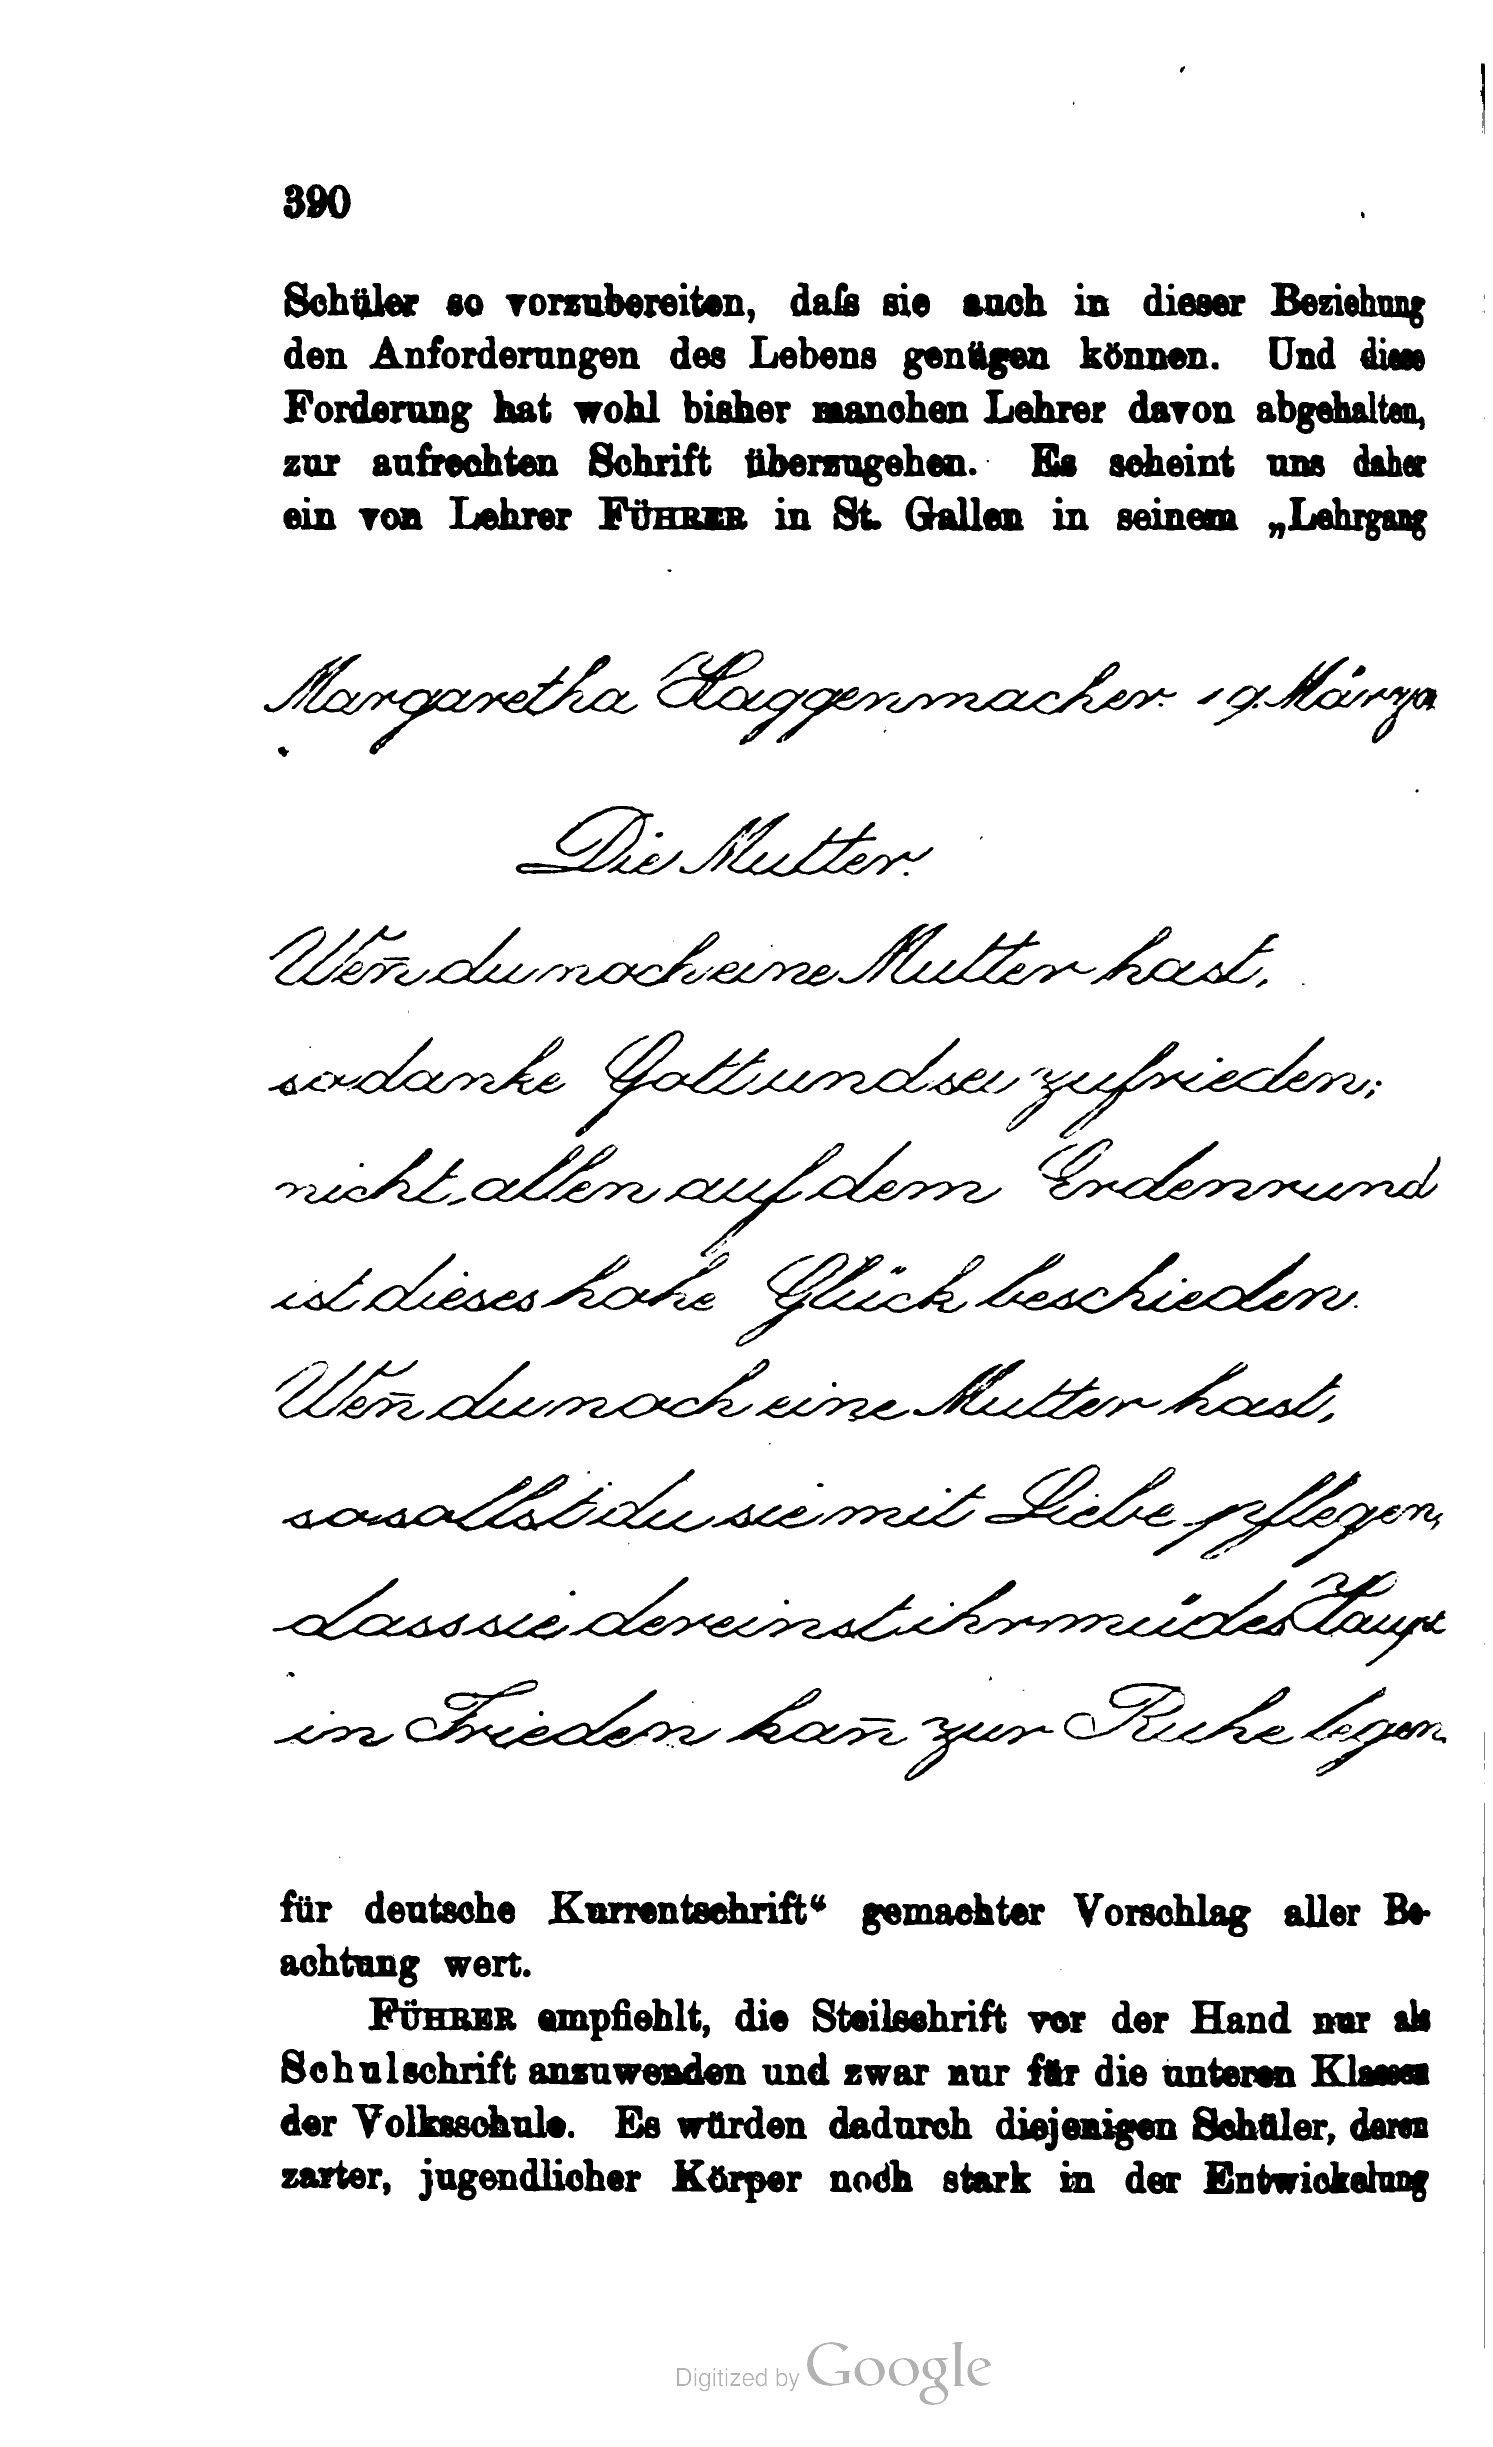 390
Schüler so vorzubereiten, daſs sie auch in dieser Beziehung
den Anforderungen des Lebens genügen können. Und diese
Forderung hat wohl bisher manchen Lehrer davon abgehalten,
zur aufrechten Schrift überzugehen. Es scheint uns daher
ein von Lehrer FÜHRER in St. Gallen in seinem „Lehrgang
Margaretha Haggenmacher. 19. März
Die Mutter.
Wen̄ du noch eine Mutter hast,
so danke Gott und sei zufrieden;
nicht allen auf dem Erdenrund
ist dieses hohe Glück beschieden.
Wen̄ du noch eine Mutter hast,
so sollst du sie mit Liebe pflegen,
dass sie dereinst ihr müdes Haupt
in Frieden kan̄ zur Ruhe legen.
für deutsche Kurrentschrift“ gemachter Vorschlag aller Be-
achtung wert.
FÜHRER empfiehlt, die Steilschrift vor der Hand nur als
Schulschrift anzuwenden und zwar nur für die unteren Klassen
der Volksschule. Es würden dadurch diejenigen Schüler, deren
zarter, jugendlicher Körper noch stark in der Entwickelung
Digitized by Google